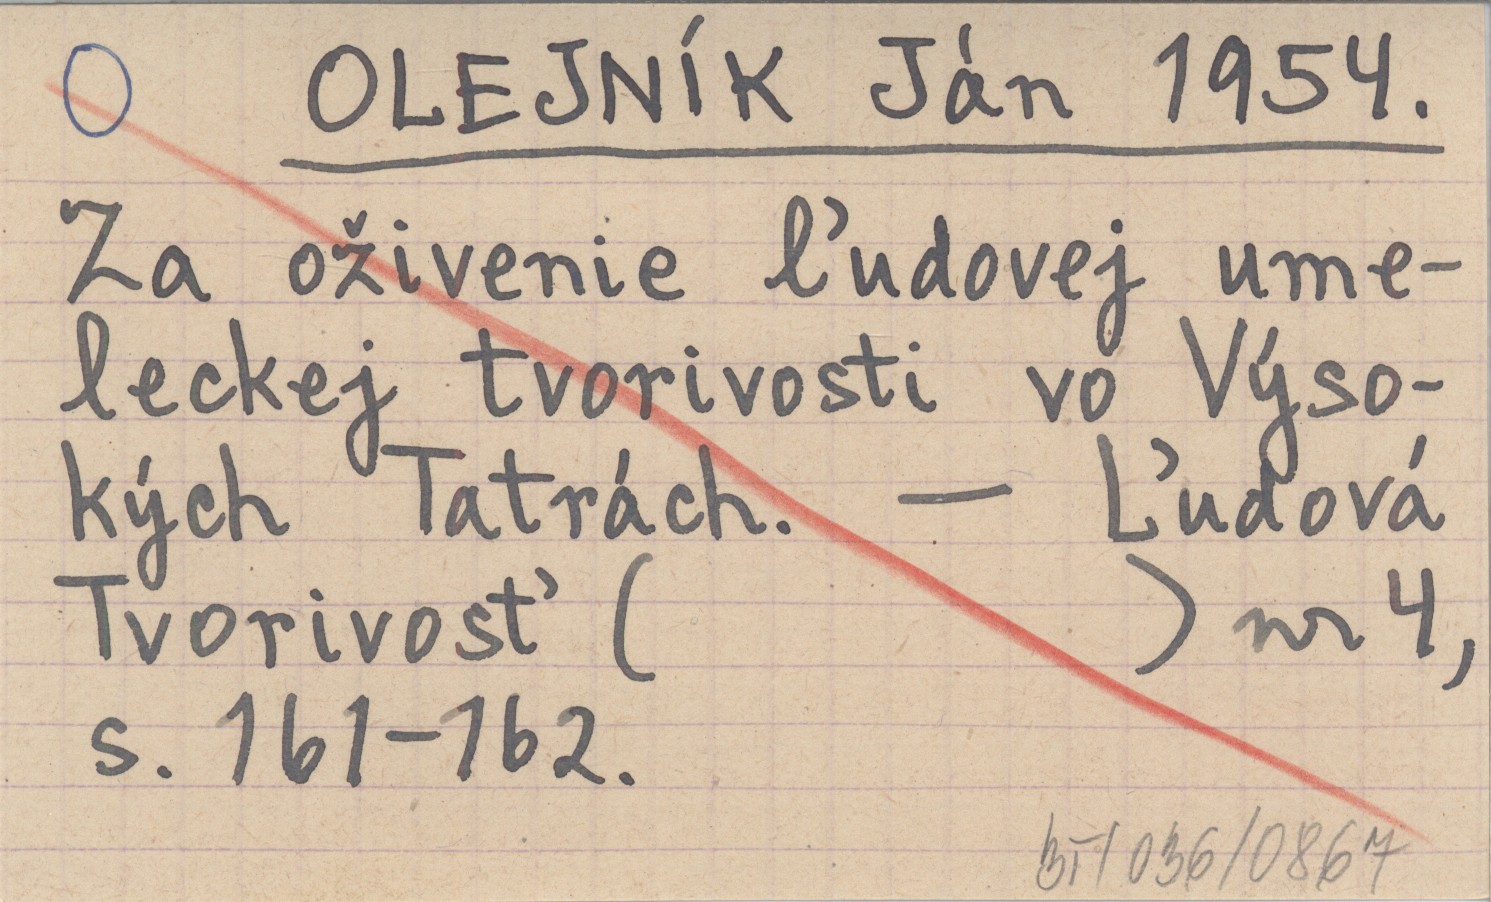 O OLEJNÍK Ján 1954.
Za oživenie ľudovej ume-
leckej tvorivosti vo Výso-
kých Tatrách. — Ľudová
Tvorivosť ( ) nr 4,
s. 161-162.
/036/0867